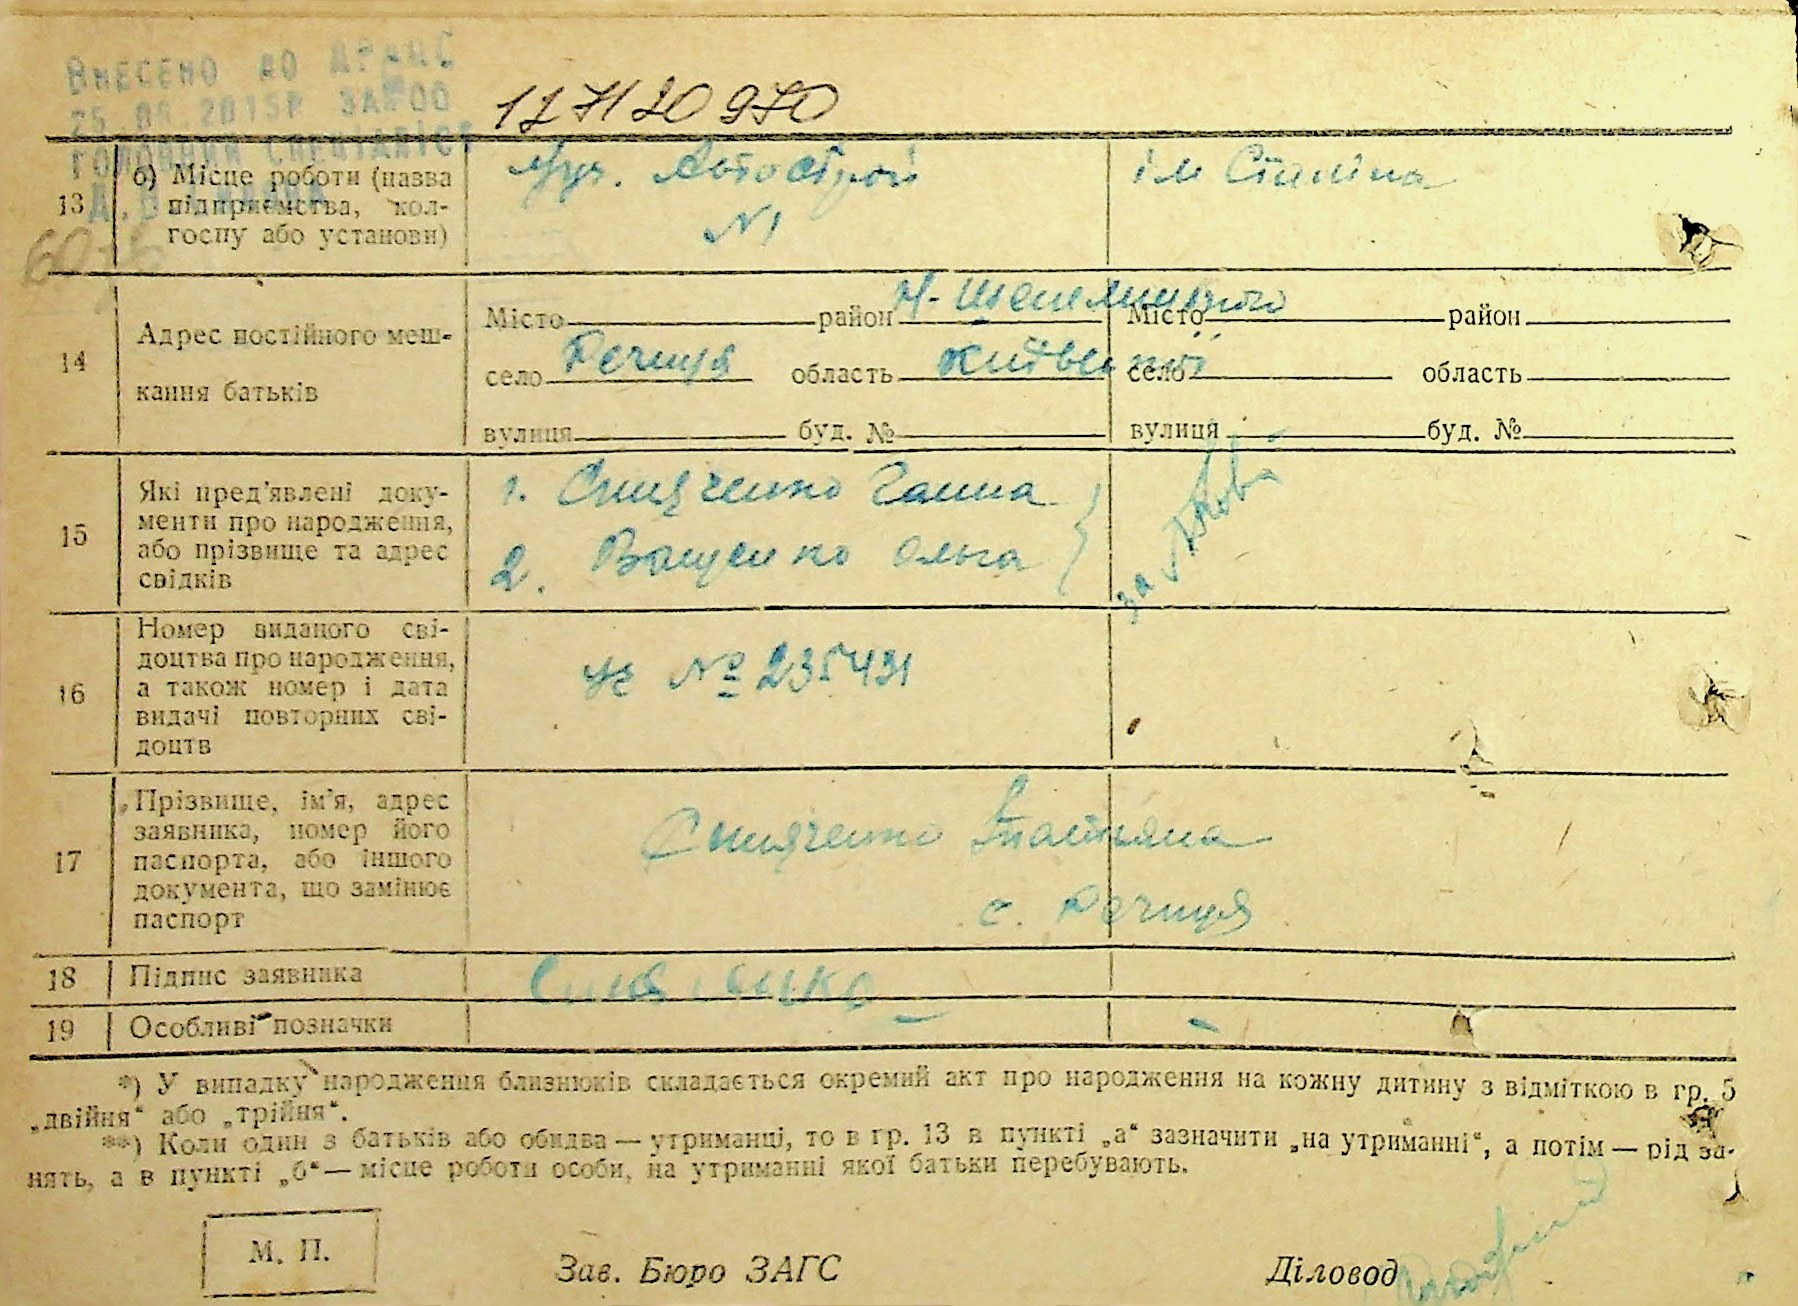 ВНЕСЕНО ДО ДРАЦС
25.08.2015Р ЗАГОО
ГОЛОВНИЙ СПЕЦІАЛІСТ
17Н20970
13
б) Місце роботи (назва
підприємства, кол-
госпу або установи)
Автострой
№1
ім Сталіна
14
Адрес постійного меш-
кання батьків
Місто район Місто район
село Речиця область Київської село область
вулиця буд. № вулиця буд. №
15
Які пред'явлені доку-
менти про народження,
або прізвище та адрес
свідків
1. Галина
2. Ващенко Ольга
16
Номер виданого сві-
доцтва про народження,
а також номер і дата
видачі повторних сві-
доцтв
№ 235431
17
Прізвище, ім'я, адрес
заявника, номер його
паспорта, або іншого
документа, що замінює
паспорт
Татьяна
с. Речиця
18
Підпис заявника
19
Особливі позначки
*) У випадку народження близнюків складається окремий акт про народження на кожну дитину з відміткою в гр. 5
„двійня“ або „трійня“.
**) Коли один з батьків або обидва — утриманці, то в гр. 13 в пункті „а“ зазначити „на утриманні“, а потім — рід за-
нять, а в пункті „б“ — місце роботи особи, на утриманні якої батьки перебувають.
М. П.
Зав. Бюро ЗАГС
Діловод